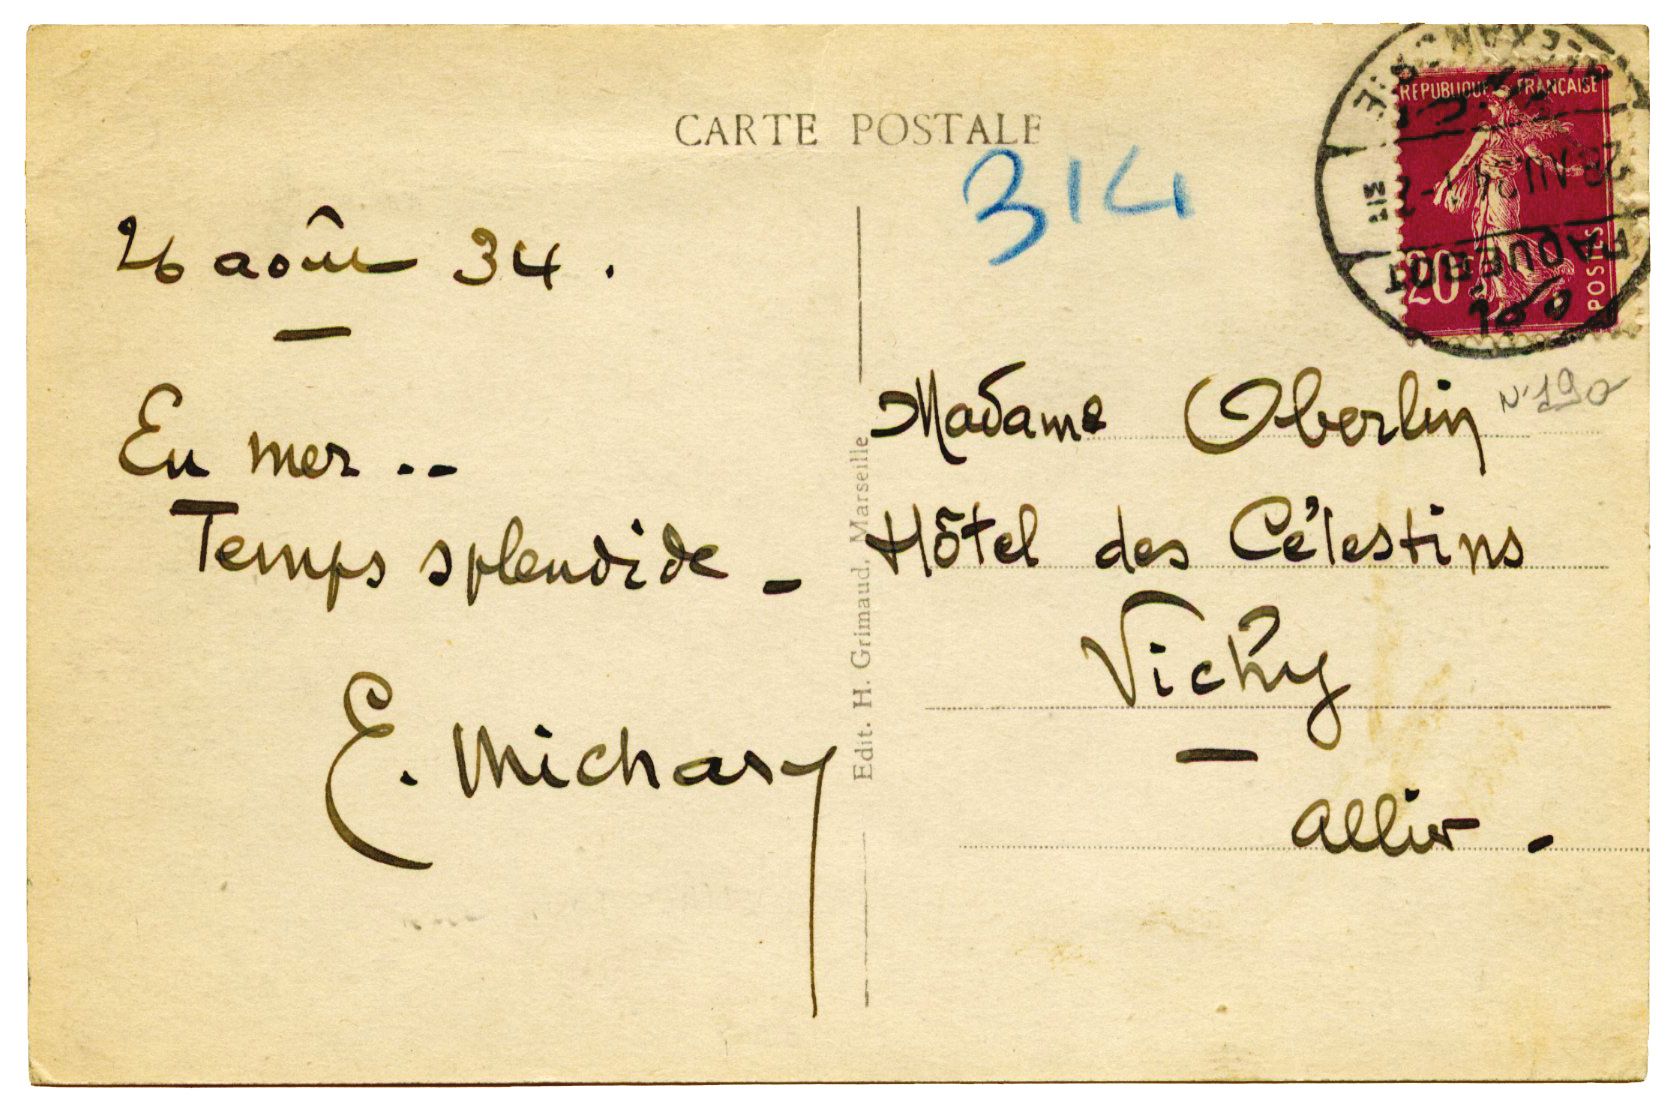 CARTE POSTALE
314
26 août 34.
En mer..
Temps splendide -
E. Michary
Edit. H. Grimaud, Marseille
RÉPUBLIQUE FRANÇAISE
20c
POSTES
PAQUEBOT
Madame Oberlin
N°190
Hôtel des Célestins
Vichy
Allier -